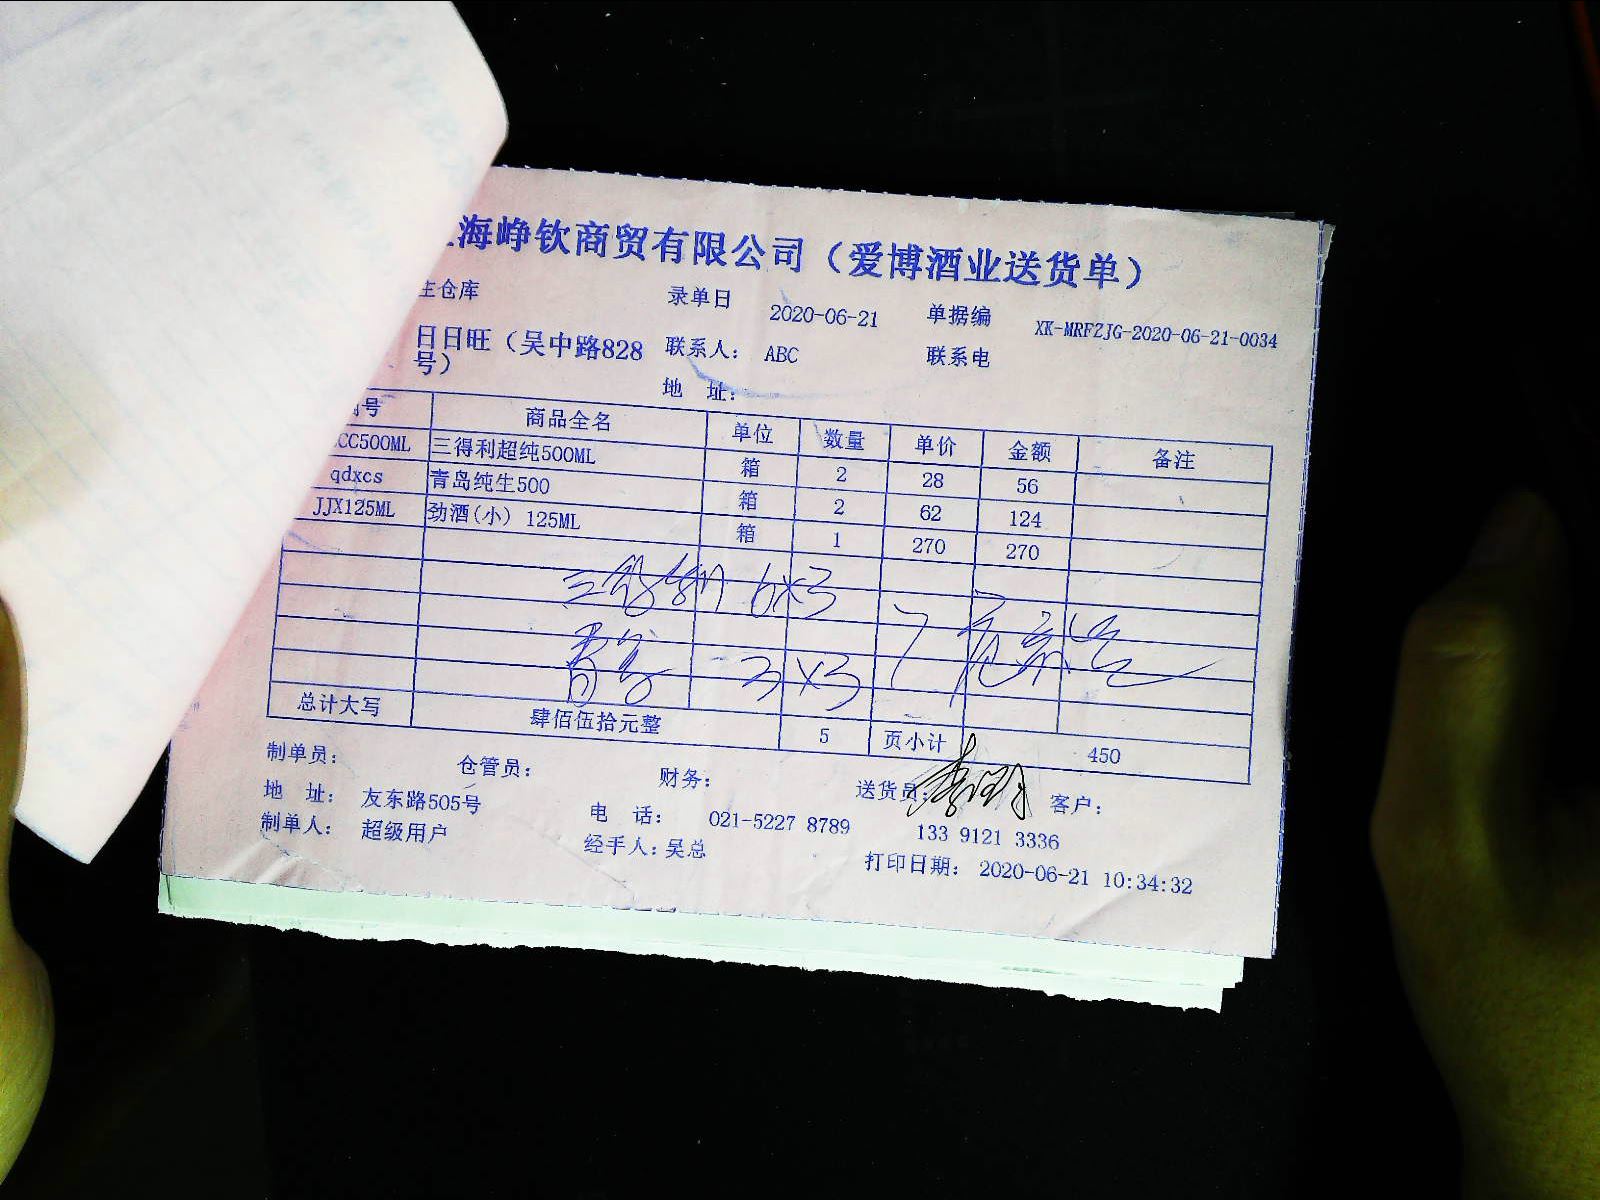 海峥钦商贸有限公司（爱博酒业送货单）
主仓库 录单日 2020-06-21 单据编 XK-MRFZJG-2020-06-21-0034
日日旺（吴中路828号） 联系人： ABC 联系电
地 址：
号 商品全名 单位 数量 单价 金额 备注
CC500ML 三得利超纯500ML 箱 2 28 56
qdxcs 青岛纯生500 箱 2 62 124
JJX125ML 劲酒(小) 125ML 箱 1 270 270
三得利 6×3
3×3
总计大写 肆佰伍拾元整 5 页小计 450
制单员： 仓管员： 财务： 送货员： 客户：
地 址： 友东路505号 电 话： 021-5227 8789 133 9121 3336
制单人： 超级用户 经手人：吴总 打印日期： 2020-06-21 10:34:32